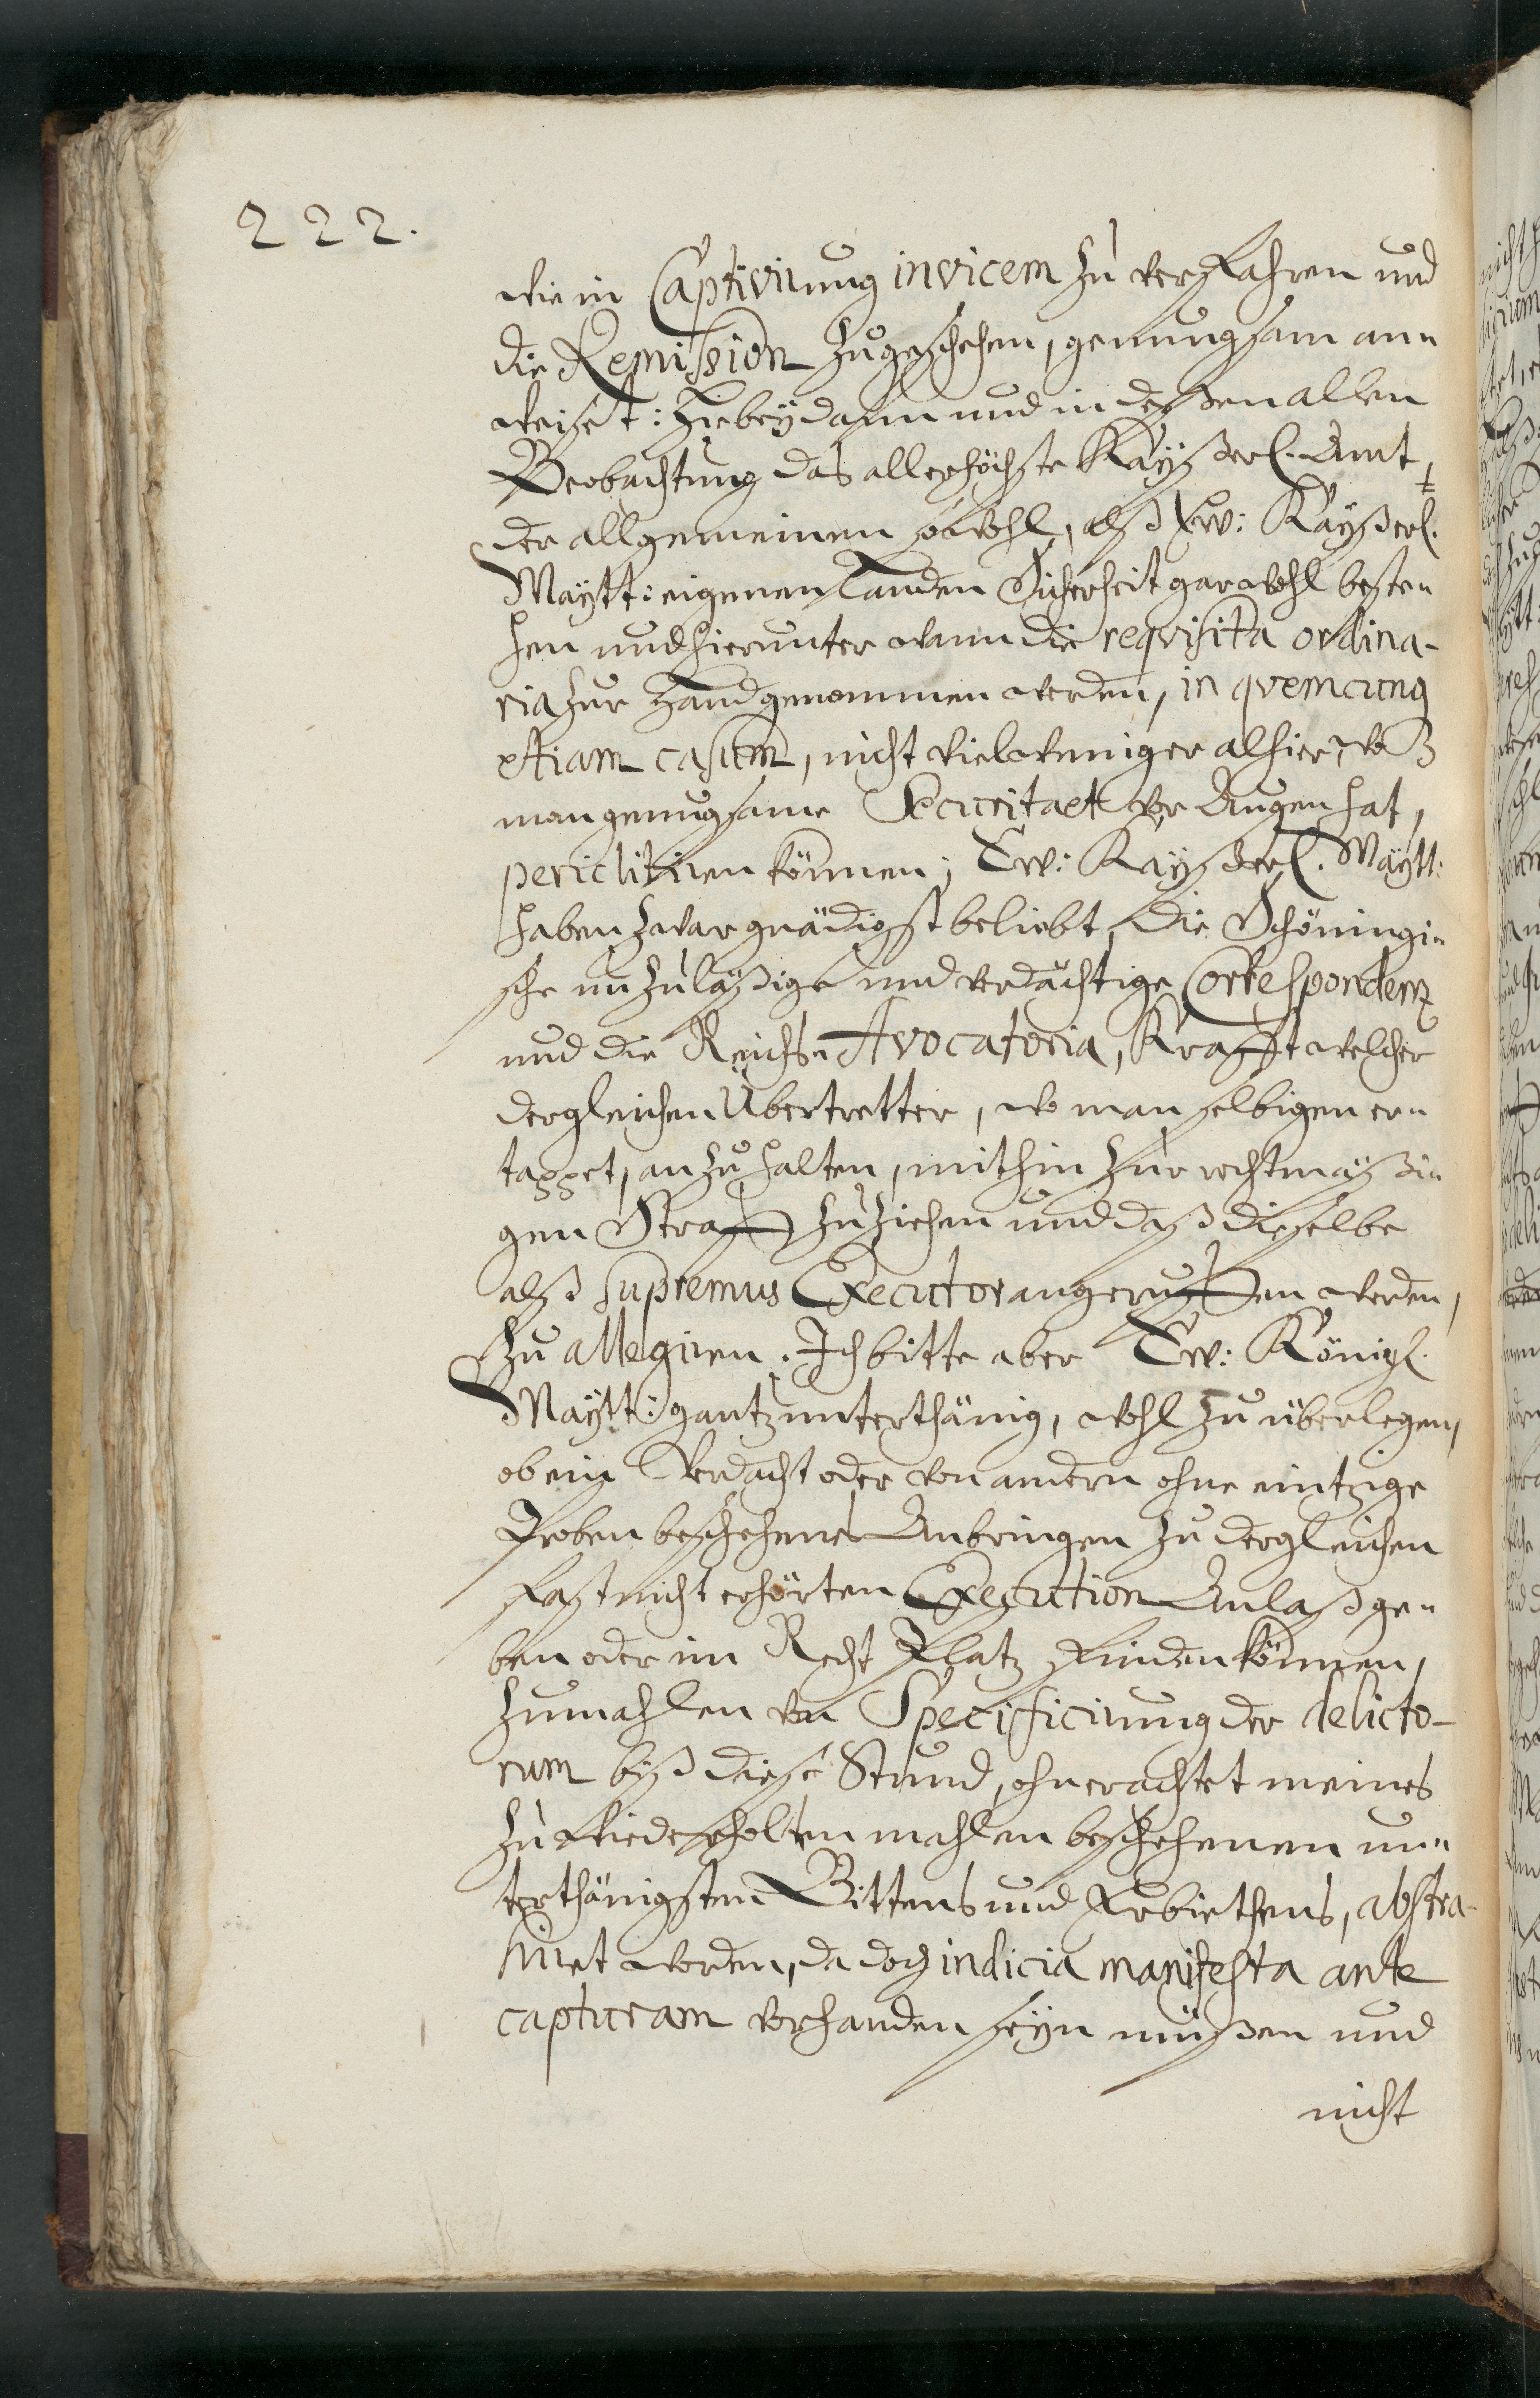 222.
wie in Captivirung invicem zu verfahren und
die Remission zugeschehen, genungsam an-
weiset: Hiebeÿ dann und in deßen allen
Beobachtung das allerhöchste Kaÿßerl. Amt,
der allgemeinen sowohl, alß Ew: Kaÿßerl.
Maÿtt: eigenen Landen Sicherheit gar wohl beste-
hen und hierunter wann die reqvisita ordina-
ria zur Hand genommen werden, in qvemcunq
etiam casum, nicht viel weniger alhier, wo
man genugsame Securitaet vor Augen hat,
periclitiren können; Ew: Kaÿßerl. Maÿtt:
haben zwar gnädigst beliebt, die Schöningi-
sche unzuläßige und verdächtige Correspondenz
und die Reichs-Avocatoria, Krafft welcher
dergleichen Übertretter, wo man selbigen er-
tappet, anzuhalten, mithin zur rechtmäßi-
gen Straff zuziehen und daß dieselbe
alß supremus Executor angeruffen werden,
zu allegiren. Ich bitte aber Ew: Königl.
Maÿtt: gantz unterthänig, wohl zu überlegen,
ob ein Verdacht oder von andern ohne eintzige
Proben beschehenes Anbringen zu dergleichen
fast nicht erhörten Execution Anlaß ge-
ben oder im Recht Platz finden können,
zumahlen von Specificirung der delicto-
rum biß diese Stund, ohnerachtet meines
zu wiederholten mahlen beschehenen un-
terthänigsten Bittens und Erbiethens, abstra-
hiret worden, da doch indicia manifesta ante
capturam vorhanden seÿn müßen und
nicht